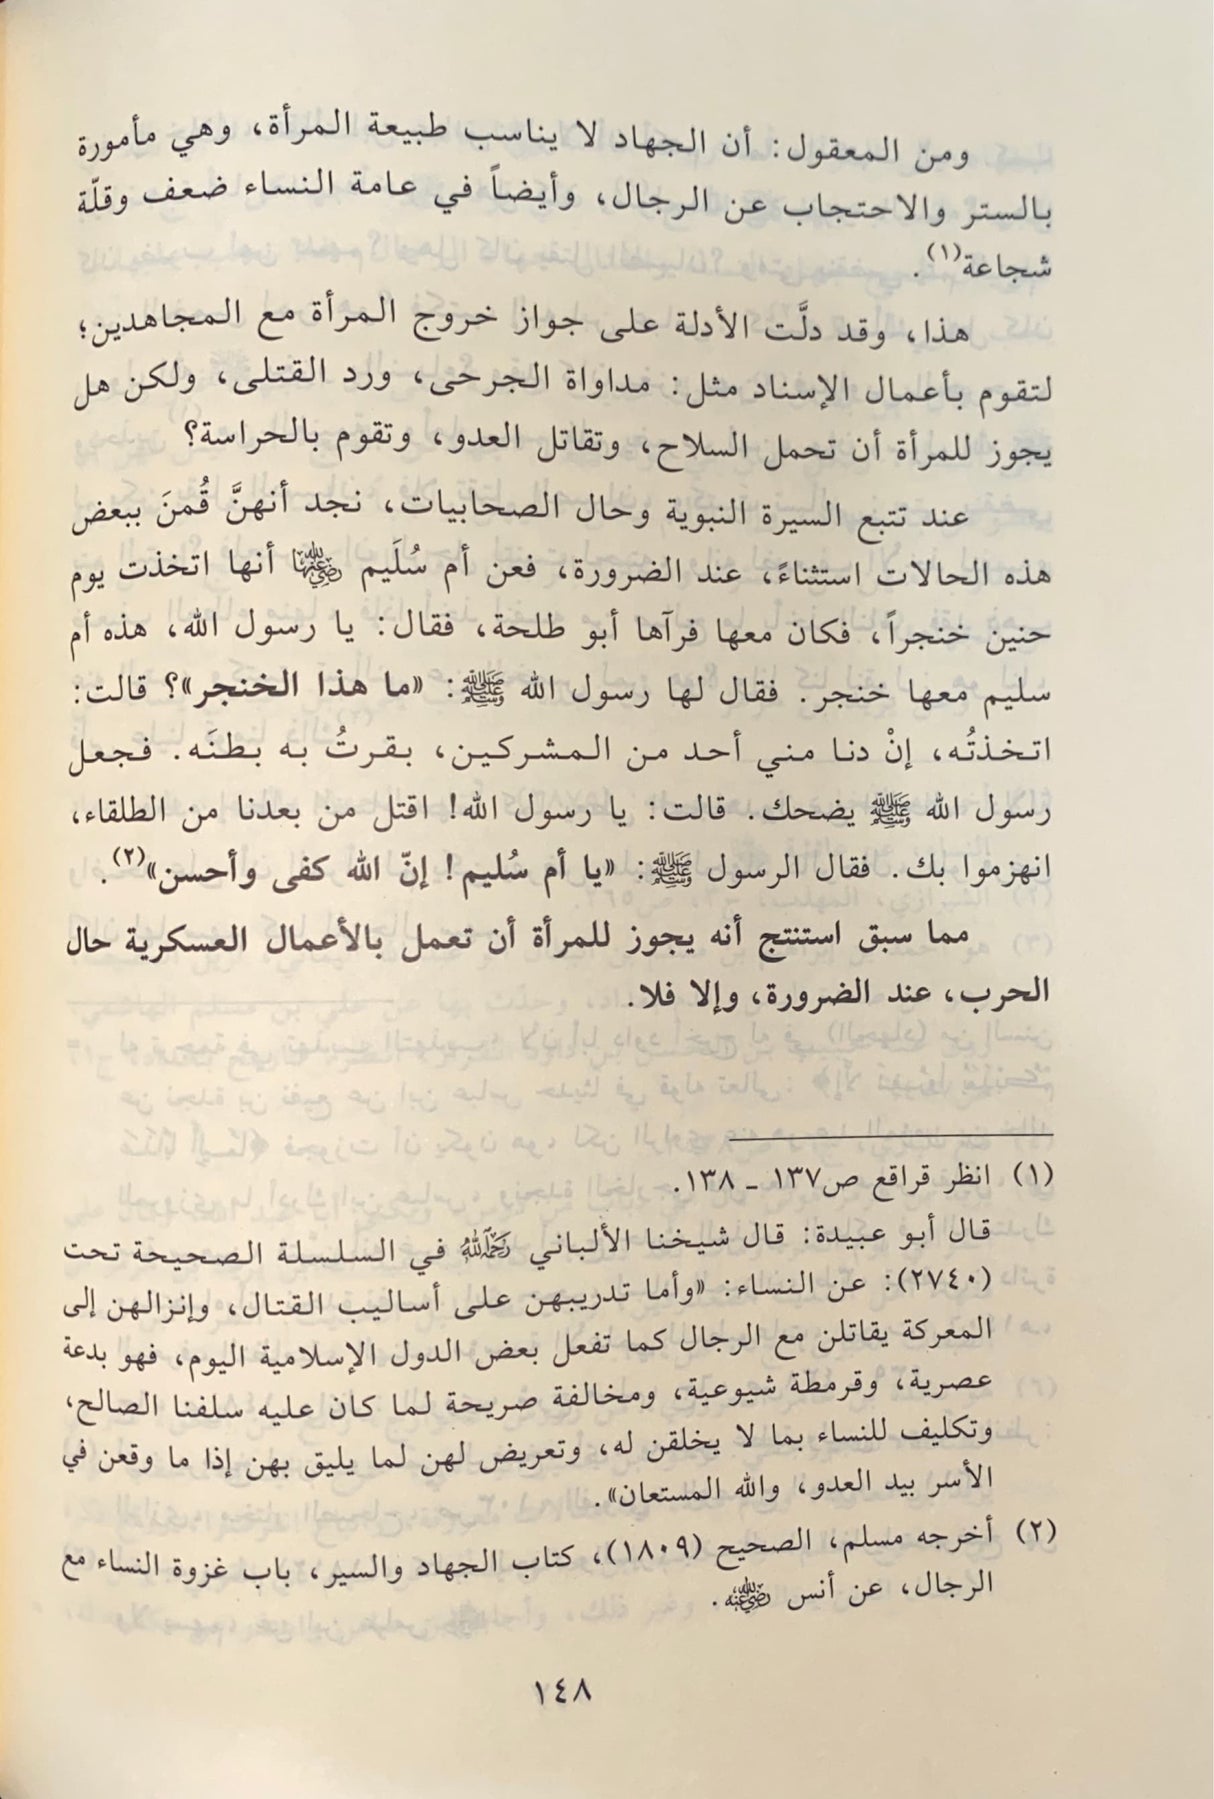 ومن المعقول: أن الجهاد لا يناسب طبيعة المرأة، وهي مأمورة
بالستر والاحتجاب عن الرجال، وأيضاً في عامة النساء ضعف وقلّة
شجاعة(١).
هذا، وقد دلَّت الأدلة على جواز خروج المرأة مع المجاهدين؛
لتقوم بأعمال الإسناد مثل: مداواة الجرحى، ورد القتلى، ولكن هل
يجوز للمرأة أن تحمل السلاح، وتقاتل العدو، وتقوم بالحراسة؟
عند تتبع السيرة النبوية وحال الصحابيات، نجد أنهنَّ قُمنَ ببعض
هذه الحالات استثناءً، عند الضرورة، فعن أم سُلَيم رضي الله عنها أنها اتخذت يوم
حنين خنجراً، فكان معها فرآها أبو طلحة، فقال: يا رسول الله، هذه أم
سليم معها خنجر. فقال لها رسول الله ﷺ: «ما هذا الخنجر»؟ قالت:
اتخذتُه، إنْ دنا مني أحد من المشركين، بقرتُ به بطنَه. فجعل
رسول الله ﷺ يضحك. قالت: يا رسول الله! اقتل من بعدنا من الطلقاء،
انهزموا بك. فقال الرسول ﷺ: «يا أم سُليم! إنّ الله كفى وأحسن»(٢).
مما سبق استنتج أنه يجوز للمرأة أن تعمل بالأعمال العسكرية حال
الحرب، عند الضرورة، وإلا فلا.
(١) انظر قراقع ص١٣٧ - ١٣٨.
قال أبو عبيدة: قال شيخنا الألباني رحمه الله في السلسلة الصحيحة تحت
(٢٧٤٠): عن النساء: «وأما تدريبهن على أساليب القتال، وإنزالهن إلى
المعركة يقاتلن مع الرجال كما تفعل بعض الدول الإسلامية اليوم، فهو بدعة
عصرية، وقرمطة شيوعية، ومخالفة صريحة لما كان عليه سلفنا الصالح،
وتكليف للنساء بما لا يخلقن له، وتعريض لهن لما يليق بهن إذا ما وقعن في
الأسر بيد العدو، والله المستعان».
(٢) أخرجه مسلم، الصحيح (١٨٠٩)، كتاب الجهاد والسير، باب غزوة النساء مع
الرجال، عن أنس رضي الله عنه.
١٤٨